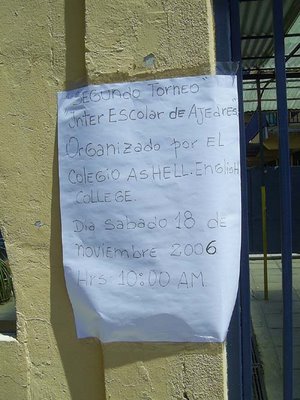 "SEGUNDO TORNEO"
Inter ESCOLAR de AJedres
ORganizado poR EL
COLEGIO AsHELL. English
COLLEGE.
Dia sabado 18 de
noviembre 2006
Hrs 10:00 AM.